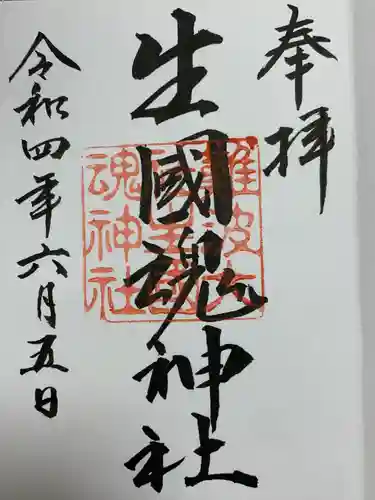 奉拝
生國魂神社
難波大社生國魂神社
令和四年六月五日